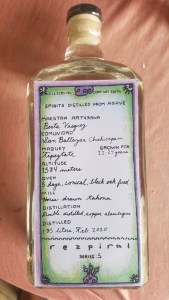 SPIRITS DISTILLED FROM AGAVE
MAESTRA ARTESANA
Berta Vasquez
COMUNIDAD
San Baltazar Chichicapam
MAGUEY GROWN FOR
Tepeztate
ALTITUDE
1584 meters
OVEN
5 days, conical, black oak fired
MILL
Horse drawn tahona
DISTILLATION
Double distilled copper alambique
DISTILLED
Liters, Feb. 2020
rezpiral
SERIES